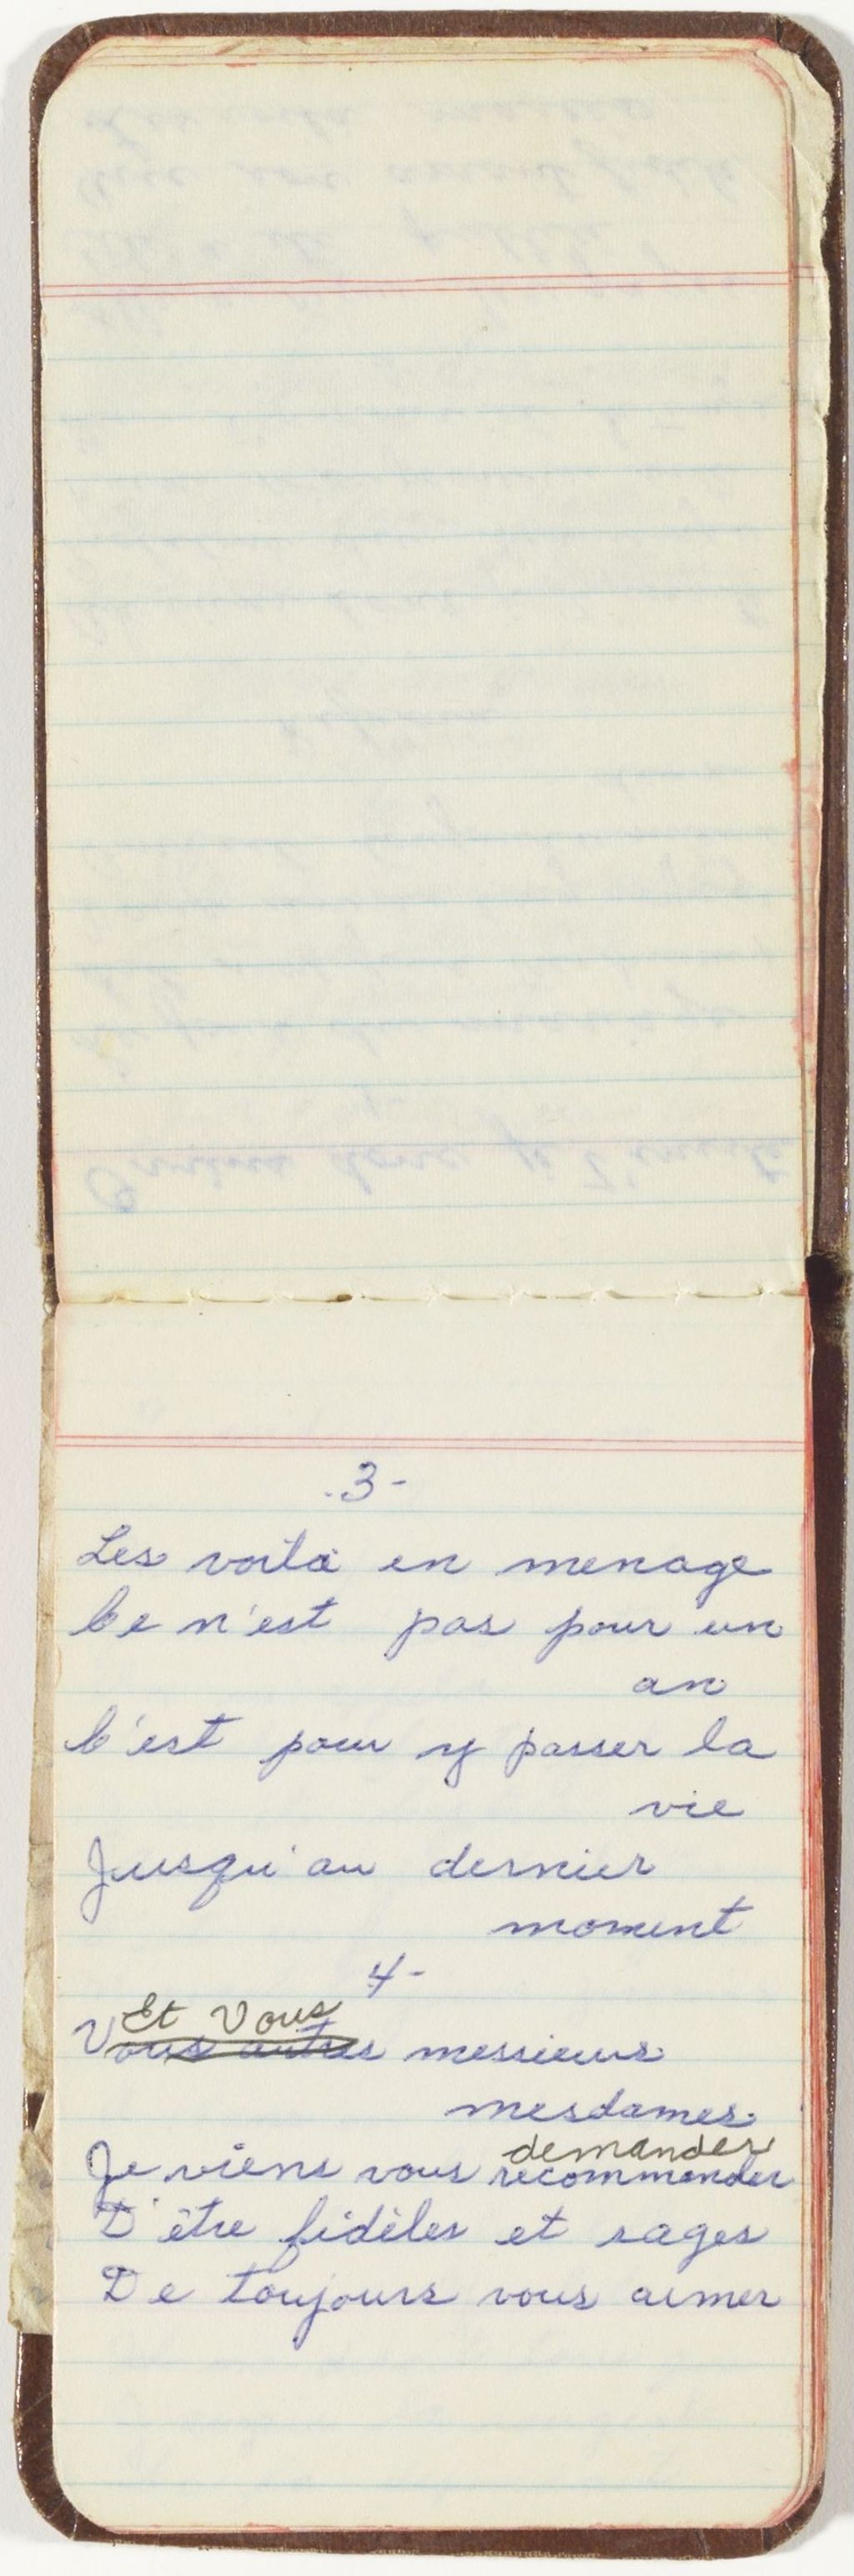 .3-
Les voilà en menage
Ce n'est pas pour un
an
C'est pour y passer la
vie
Jusqu'au dernier
moment
4-
Et Vous
Vous autres messieurs
mesdames.
demander
Je viens vous recommander
D'être fidèles et sages
De toujours vous aimer